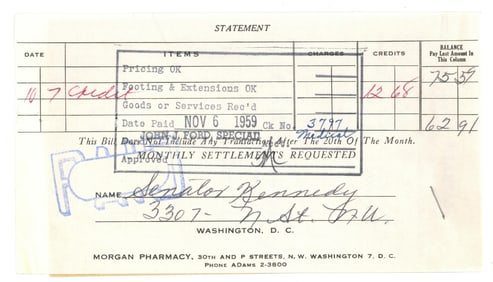 STATEMENT
DATE ITEMS CHARGES CREDITS BALANCE
Pay Last Amount In
This Column
75 59
Pricing OK
10 7 Credit Footing & Extensions OK 12 68
Goods or Services Rec'd
Date Paid NOV 6 1959 Ck No. 3797 62 91
JOHN J. FORD, SPECIAL Medical
This Bill Does Not Include Any Transactions After The 20th Of The Month.
Approved
MONTHLY SETTLEMENTS REQUESTED
PAID
NAME Senator Kennedy
3307- N. St. N.W.
WASHINGTON, D. C.
MORGAN PHARMACY, 30TH AND P STREETS, N. W. WASHINGTON 7, D. C.
PHONE ADAMS 2-3800